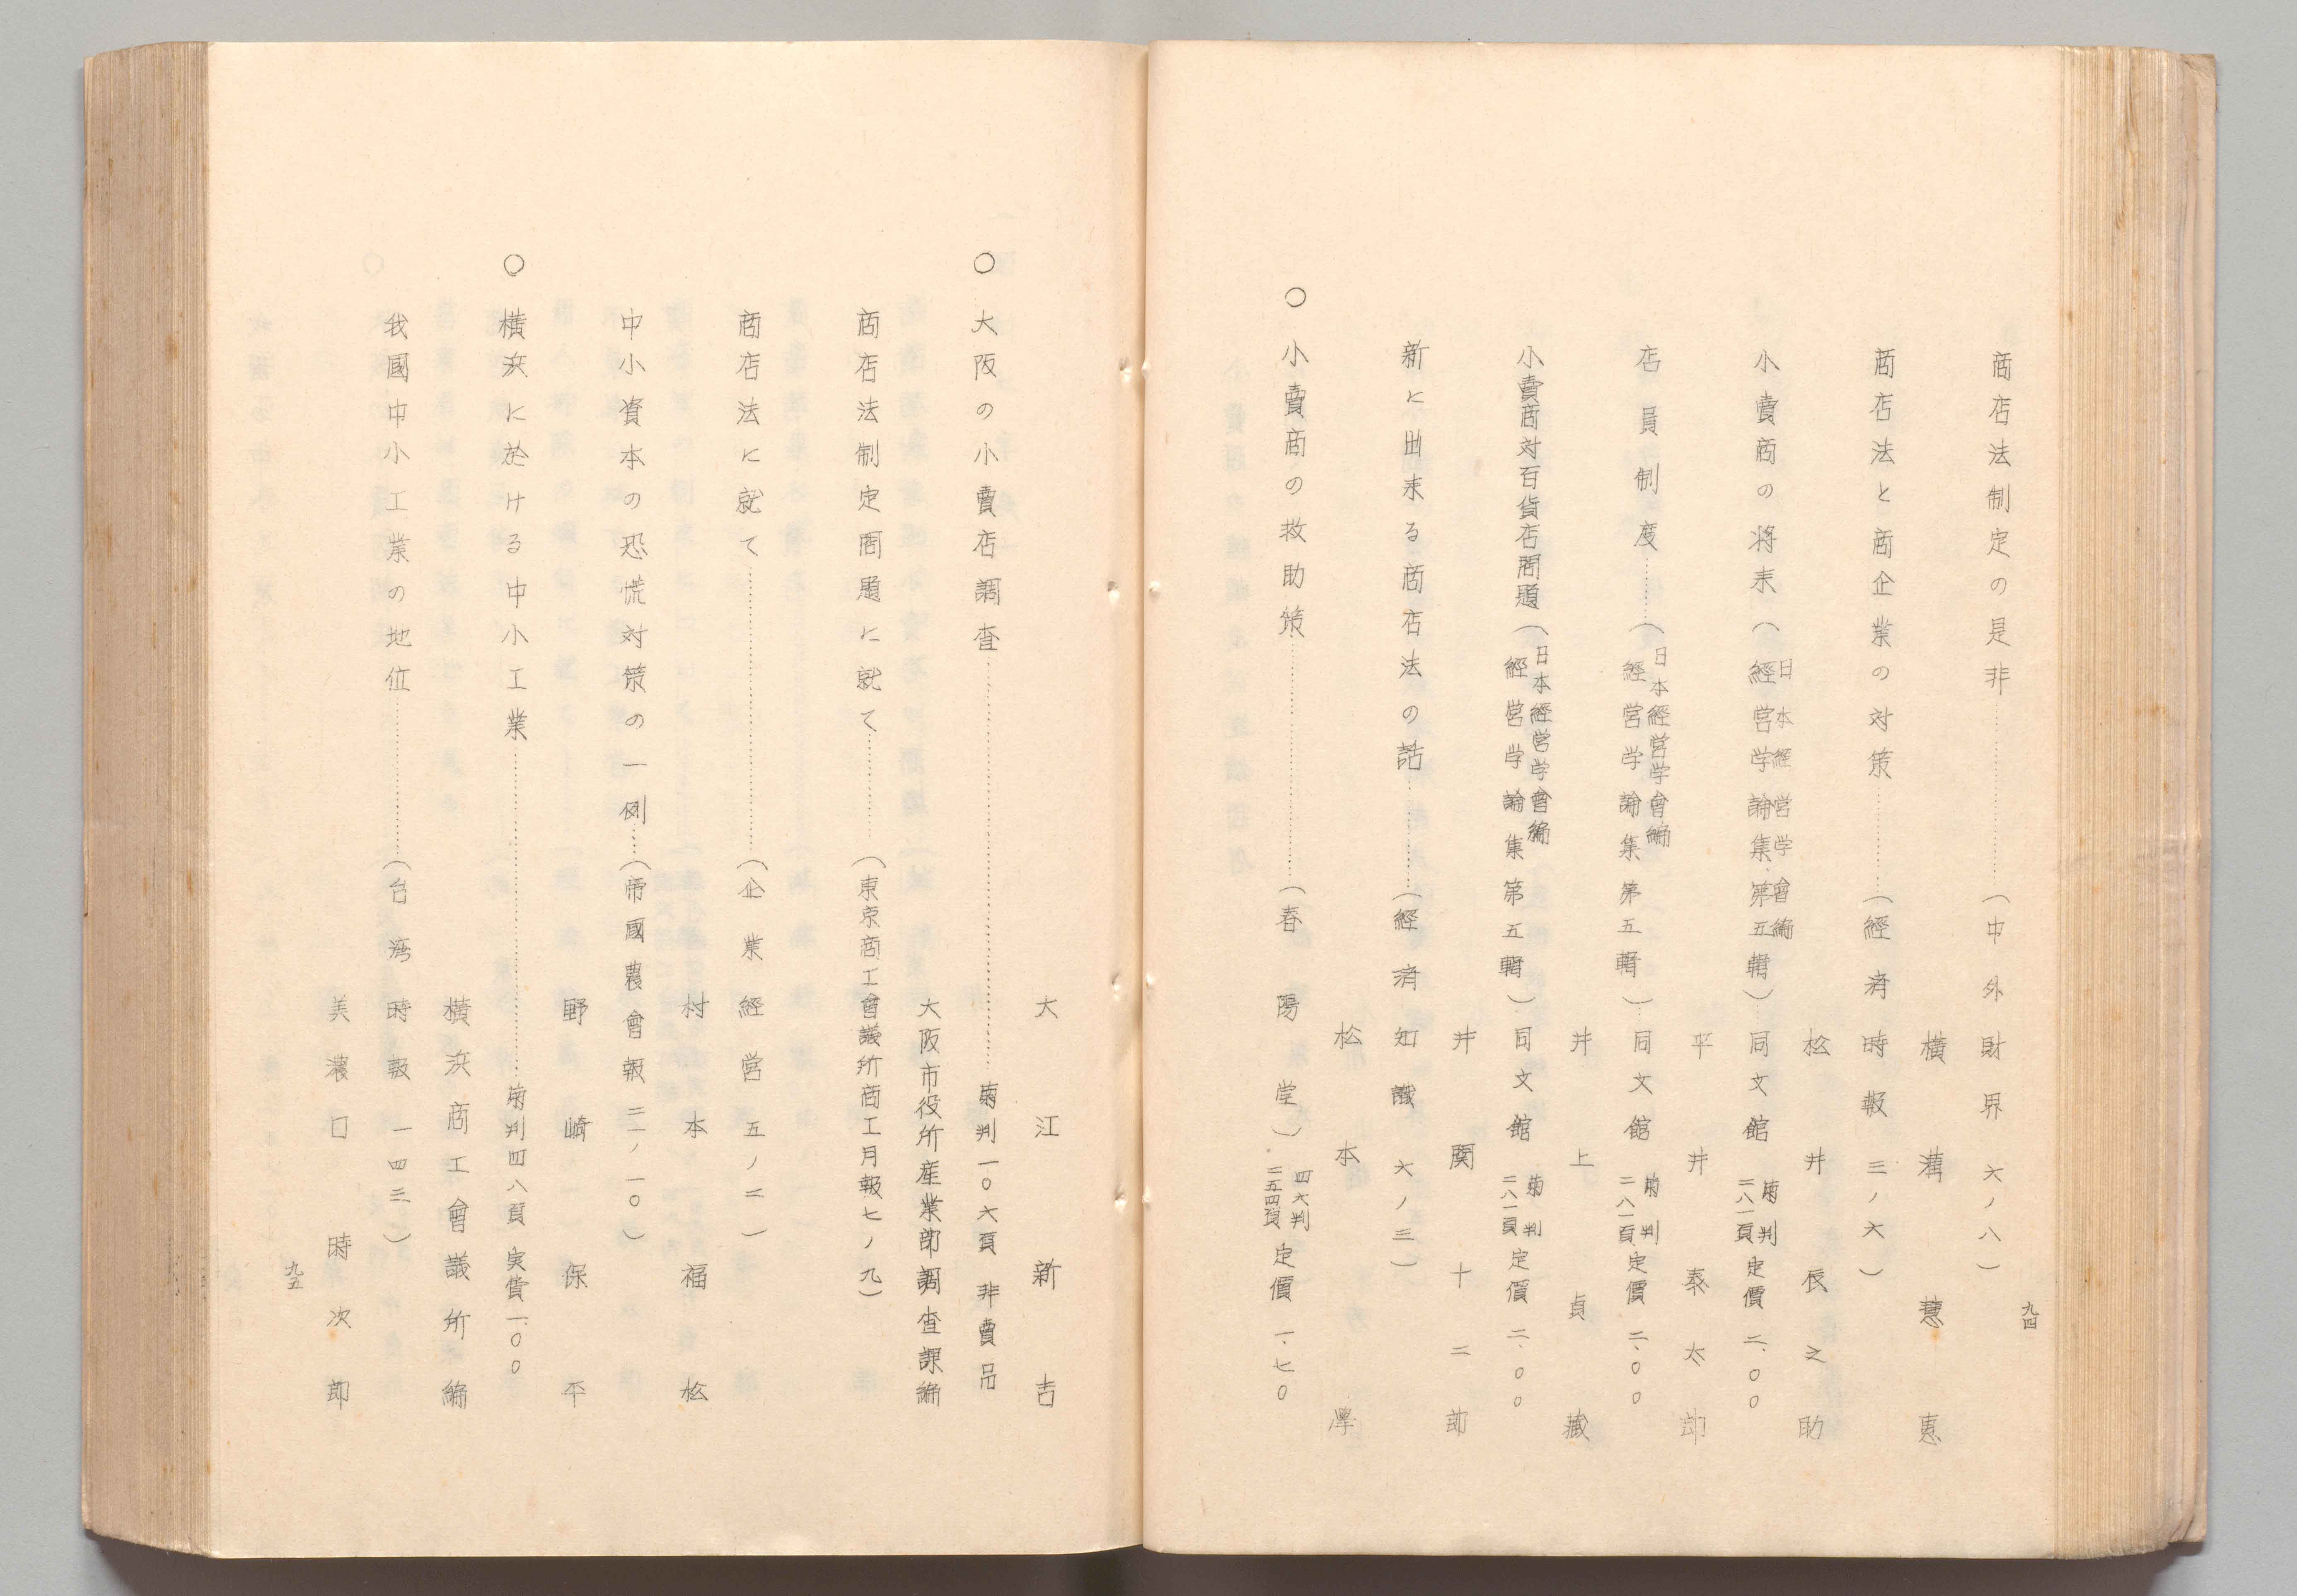 九四
商店法制定の是非…………(中外財界 六ノ八)
橫溝慧惠
商店法と商企業の対策…………(経済時報 三ノ六)
松井辰之助
小賣商の将来(日本経営学會編 経営学論集第五輯)…同文館 菊判二八一頁 定價 二、〇〇
平井泰太郎
店員制度………(日本経営学會編 経営学論集第五輯)…同文館 菊判二八一頁 定價 二、〇〇
井上貞藏
小賣商対百貨店問題(日本経営学會編 経営学論集第五輯)…同文館 菊判二八一頁 定價 二、〇〇
井関十二郎
新に出来る商店法の話…………(経済知識 六ノ三)
松本學
〇 小賣商の救助策…………(春陽堂)四六判二五四頁 定價 一、七〇
大江新吉
〇 大阪の小賣店調査…………菊判一〇六頁 非賣品
大阪市役所産業部調査課編
商店法制定問題に就て…………(東京商工會議所商工月報七ノ九)
商店法に就て…………(企業経営 五ノ二)
村本福松
中小資本の恐慌対策の一例……(帝國農會報 二一ノ一〇)
野崎保平
〇 橫浜に於ける中小工業…………菊判四八頁 実費一、〇〇
橫浜商工會議所編
我國中小工業の地位…………(台湾時報 一四三)
美濃口時次郎
九五